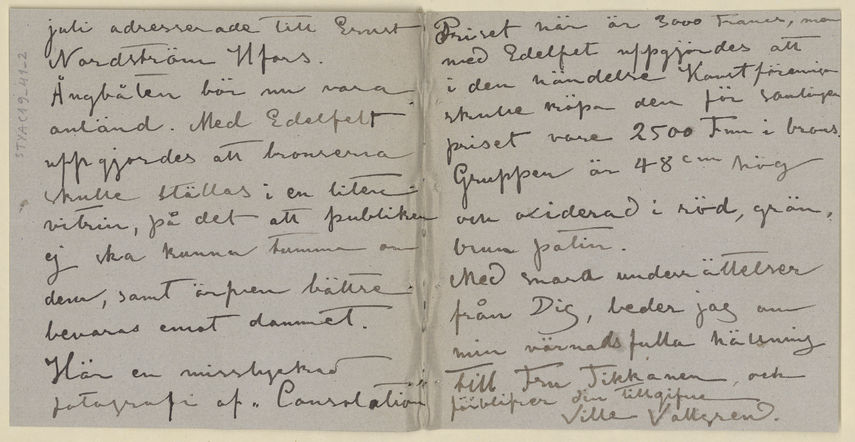 juli adresserade till Ernst
Nordström Hfors.
Ångbåten bör nu vara
anländ. Med Edelfelt
uppgjordes att bronserna
skulle ställas i en liten
vitrin, på det att publiken
ej ska kunna tumma om
dem, samt äfven bättre
bevaras emot dammet.
Här en misslyckad
fotografi af "Consolation"
Priset här är 3000 Francs, men
med Edelfet uppgjordes att
i den händelse Konstföreningen
skulle köpa den för samlingen
priset vore 2500 Fmk i brons.
Gruppen är 48 cm hög
och oxiderad i röd, grön,
brun patin.
Med snara underrättelser
från Dig, beder jag om
min vördnadsfulla hälsning
till Fru Tikkanen, och
förblifver din tillgifne
Ville Vallgren.
STVA C19_41-2